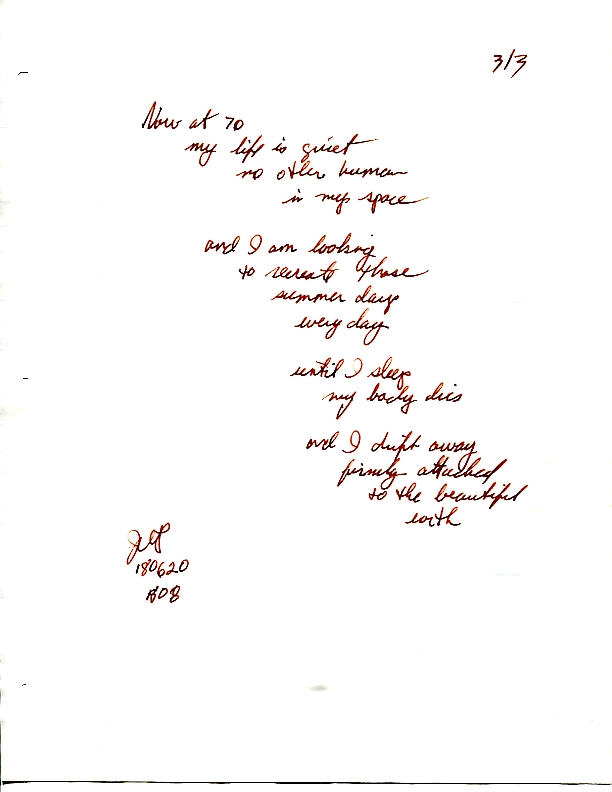 3/3
Now at 70
my life is quiet
no other human
in my space
and I am looking
to recreate those
summer days
every day
until I sleep
my body dies
and I drift away
firmly attached
to the beautiful
earth
180620